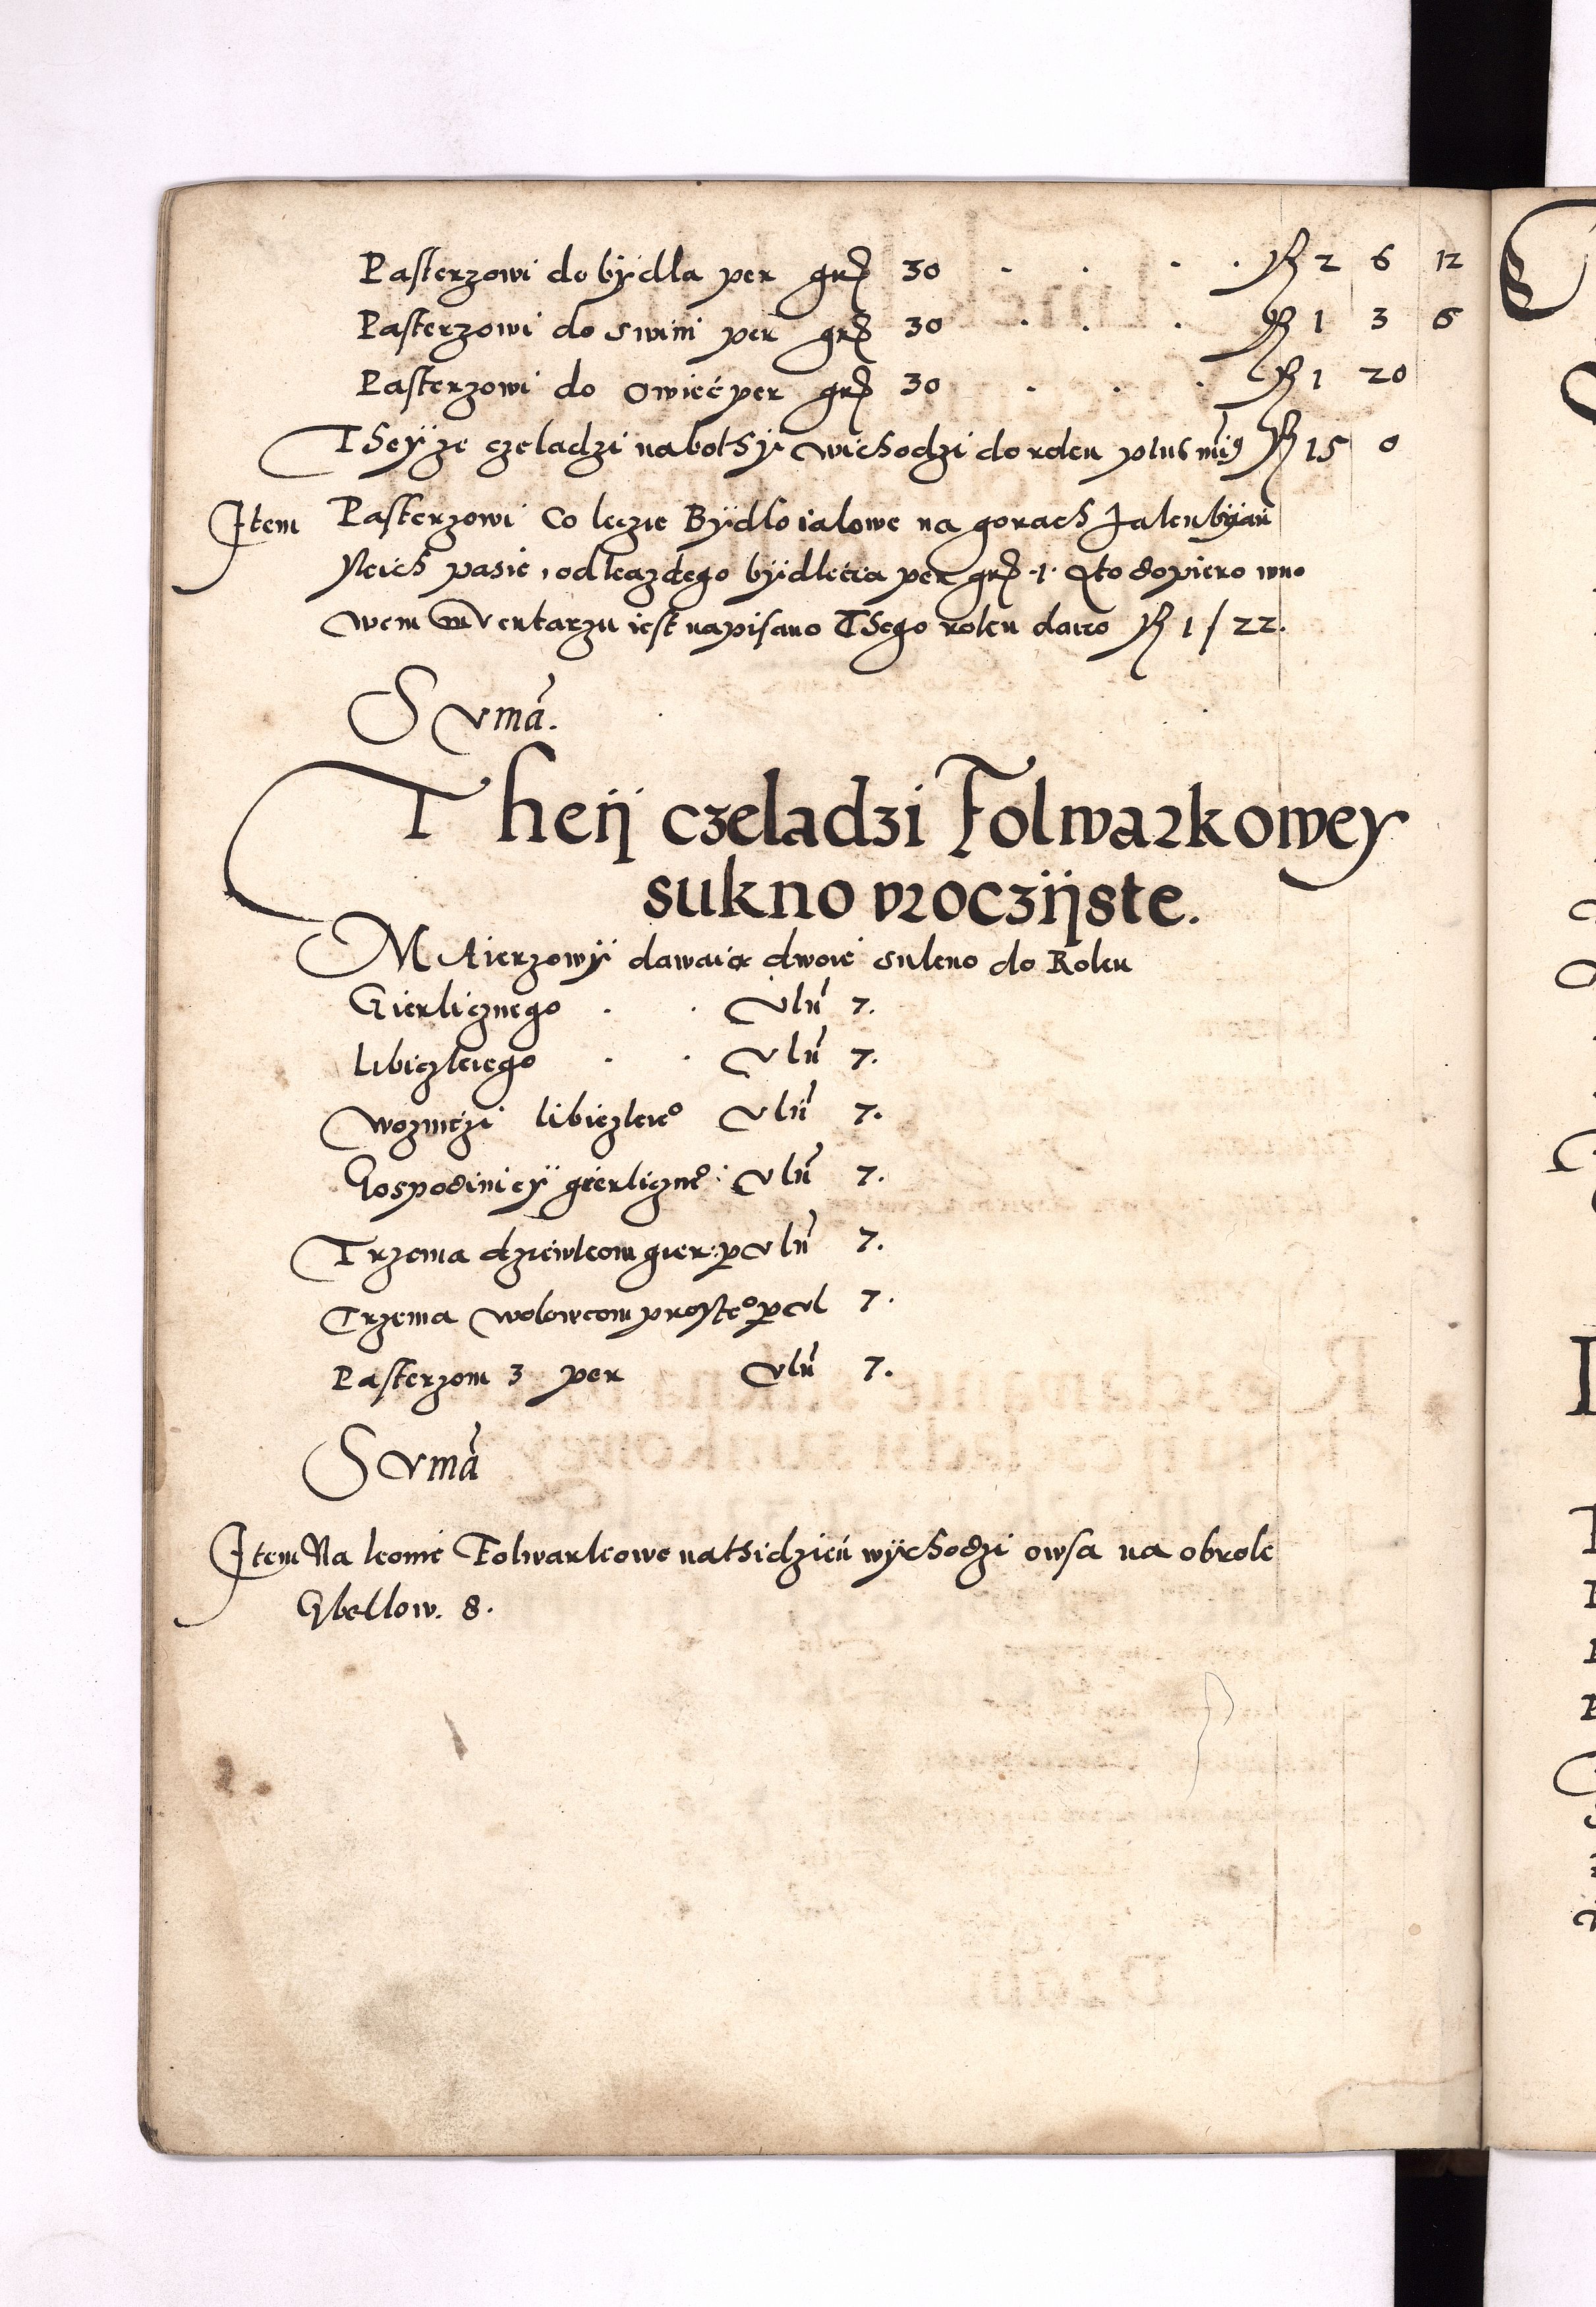 Pasterzowi do bydla per grꝭ 30 . . . . fl 2 6 12
Pasterzowi do swini per grꝭ 30 . . . fl 1 3 6
Pasterzowi do owiec per grꝭ 30 . . . fl 1 20
Theyze czeladzi na bothy wichodzi do roku plus miꝰ fl 15 0
Item Pasterzowi Co lezie Bydlo ialowe na gorach
pasie, od kazdego bydlecia per grꝭ 1. dopiero wno
wem Inventarzu iest napisano Thego roku dano fl 1/22.
Suma.
Theij czeladzi Folwarkowey
sukno vroczijste.
dawaia dwoie sukno do Roku
Gierlicznego . . vlń 7.
Libiczkiego . . vlń 7.
Wozniczi libiczkieº vlń 7.
Gospodinicy gierliczneº: vlń 7.
Trzema dziewkom gier: ꝑ vlń 7.
Trzema wolowcom prosteº ꝑ vl 7.
Pasterzom 3 per vlń 7.
Suma
Item Na konie Folwarkowe na thidzień wychodzi owsa na obrok
Gbellow. 8.